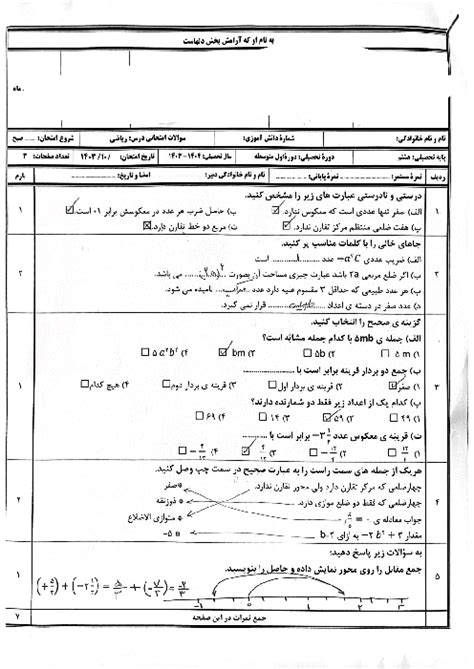 به نام او که آرامش بخش دلهاست
ماه
نام و نام خانوادگی: شماره دانش آموزی: سوالات امتحانی درس: ریاضی شروع امتحان: ...... صبح
پایه تحصیلی: هشتم دوره تحصیلی: دوره اول متوسطه سال تحصیلی: ۱۴۰۴-۱۴۰۳ تاریخ امتحان: ۱۴۰۳/۱۰/ تعداد صفحات: ۳
ردیف نمره مستمر: نمره پایانی: نام و نام خانوادگی دبیر: امضا و تاریخ: بارم
۱ درستی و نادرستی عبارت های زیر را مشخص کنید. ۱
الف) صفر تنها عددی است که معکوس ندارد. ☑ ب) حاصل ضرب هر عدد در معکوسش برابر ۱+ است. ☑
پ) هفت ضلعی منتظم مرکز تقارن ندارد. ☑ ت) مربع دو خط تقارن دارد. ☑
۲ جاهای خالی را با کلمات مناسب پر کنید. ۲
الف) ضریب عددی عدد است
ب) اگر ضلع مربعی ۲a باشد عبارت جبری مساحت آن بصورت می باشد.
ج) هر عدد طبیعی که حداقل ۳ مقسوم علیه دارد عدد نامیده می شود.
د) عدد صفر در دسته ی اعداد قرار نمی گیرد.
۳ گزینه ی صحیح را انتخاب کنید. ۱
الف) جمله ی ۵mb با کدام جمله مشابه است؟
۱) ۵ m ☐ ۲) ۵b ☐ ۳) bm ☑ ۴) ☐
ب) جمع دو بردار قرینه برابر است با
۱) صفر ☑ ۲) قرینه ی بردار اول ☐ ۳) قرینه ی بردار دوم ☐ ۴) هیچ کدام ☐
پ) کدام یک از اعداد زیر فقط دو شمارنده دارند؟
۱) ۴۹ ☐ ۲) ۵۹ ☑ ۳) ۱۴ ☐ ۴) ۶۹ ☐
ت) قرینه ی معکوس عدد برابر است با
۴ هریک از جمله های سمت راست را به عبارت صحیح در سمت چپ وصل کنید. ۲
چهارضلعی که مرکز تقارن دارد ولی محور تقارن ندارد. صفر
چهارضلعی که فقط دو ضلع موازی دارد. ذوزنقه
جواب معادله ی متوازی الاضلاع
مقدار به ازای ۵-
۵ به سؤالات زیر پاسخ دهید: ۱
جمع مقابل را روی محور نمایش داده و حاصل را بنویسید.
-۱ ۰ ۱ ۲ ۳
جمع نمرات در این صفحه ۷